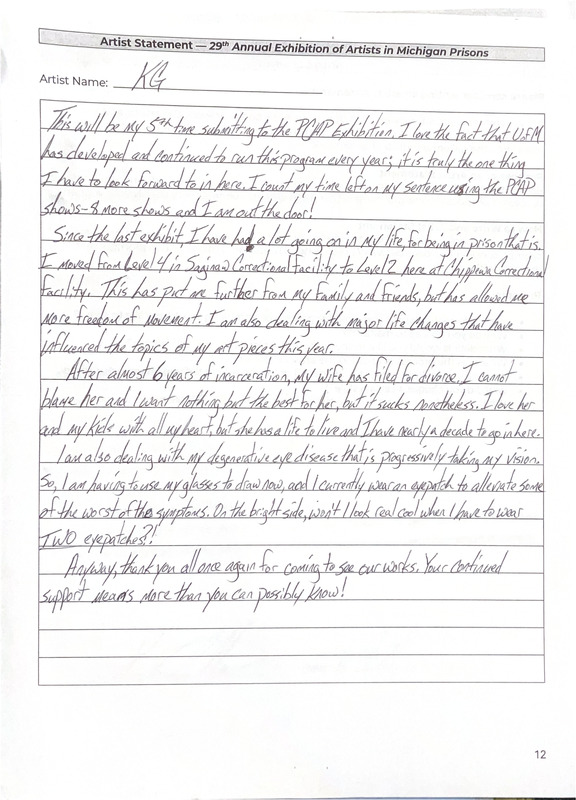 Artist Statement — 29th Annual Exhibition of Artists in Michigan Prisons
Artist Name: KG
This will be my 5th time submitting to the PCAP Exhibition. I love the fact that UofM
has developed and continued to run this program every year; it is truly the one thing
I have to look forward to in here. I count my time left on my sentence using the PCAP
shows-8 more shows and I am out the door!
Since the last exhibit, I have had a lot going on in my life, for being in prison that is.
I moved from Level 4 in Saginaw Correctional Facility to Level 2 here at Chippewa Correctional
Facility. This has put me further from my family and friends, but has allowed me
more freedom of movement. I am also dealing with major life changes that have
influenced the topics of my art pieces this year.
After almost 6 years of incarceration, my wife has filed for divorce. I cannot
blame her and I want nothing but the best for her, but it sucks nonetheless. I love her
and my kids with all my heart, but she has a life to live and I have nearly a decade to go in here.
I am also dealing with my degenerative eye disease that is progressively taking my vision.
So, I am having to use my glasses to draw now, and I currently wear an eyepatch to alleviate some
of the worst of the symptoms. On the bright side, won't I look real cool when I have to wear
TWO eyepatches?!
Anyway, thank you all once again for coming to see our works. Your continued
support means more than you can possibly know!
12